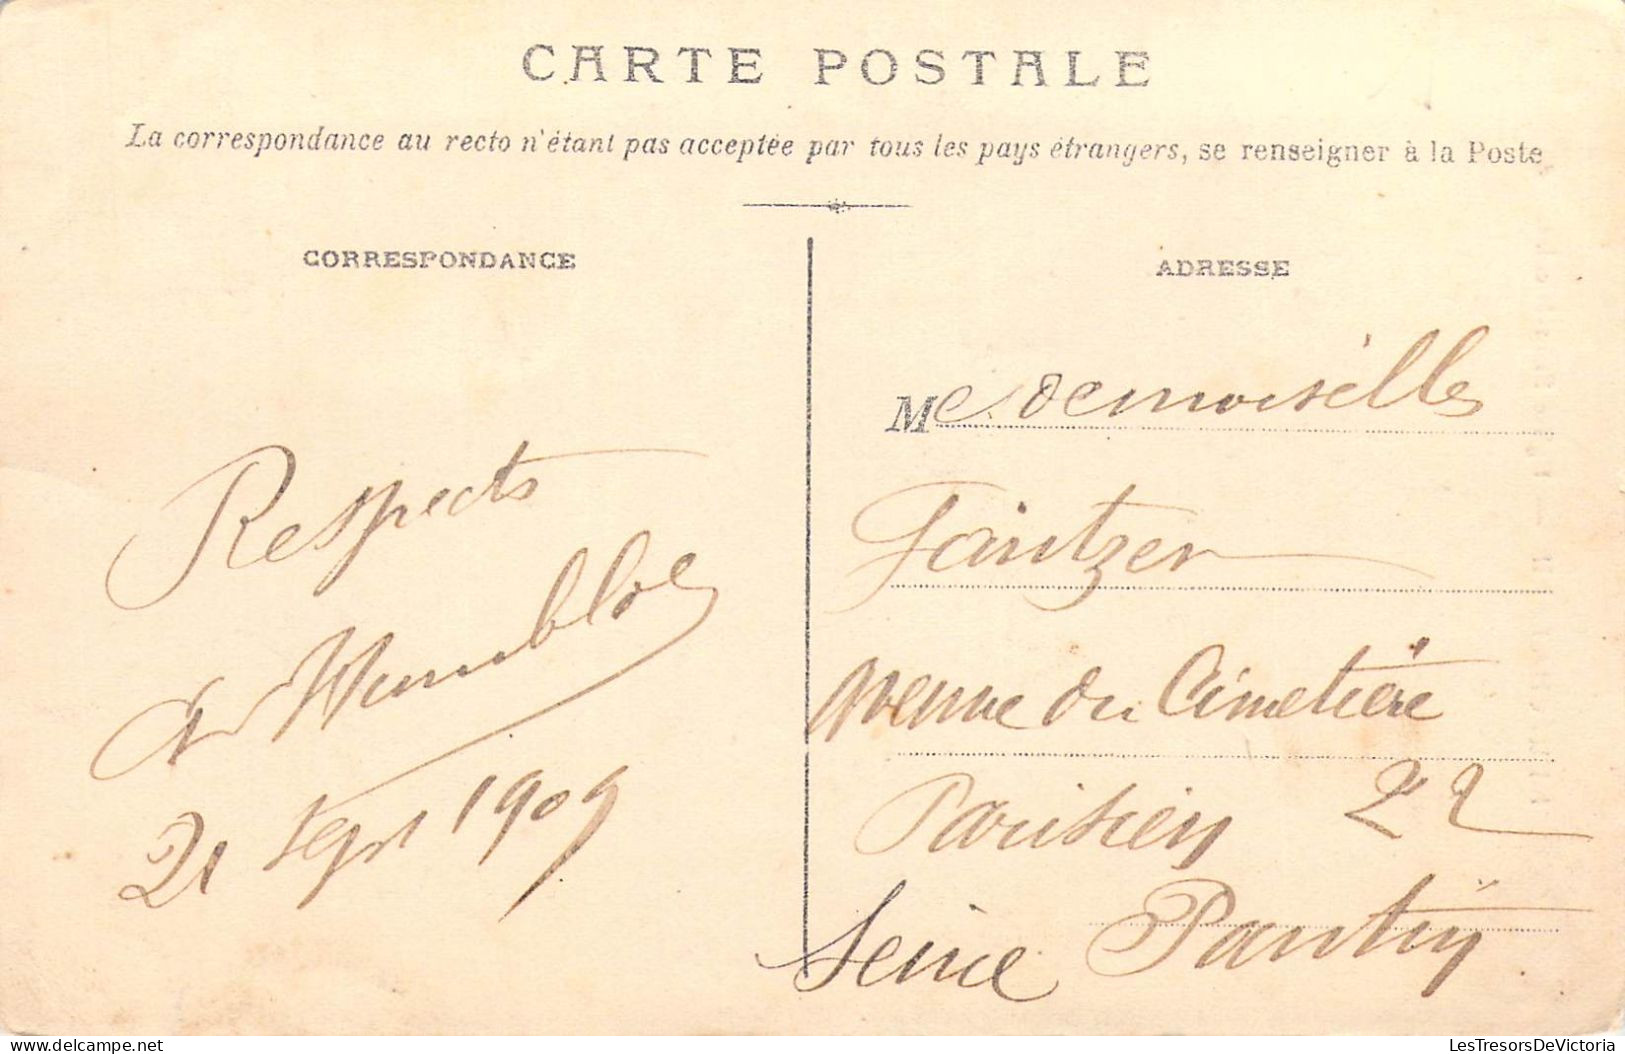 CARTE POSTALE
La correspondance au recto n'étant pas acceptée par tous les pays étrangers, se renseigner à la Poste
CORRESPONDANCE
Respects
21 Sept 1909
ADRESSE
Mesdemoiselles
Avenue du Cimetière
Parisien 22
Seine Pantin
LesTresorsDeVictoria
delcampe.net